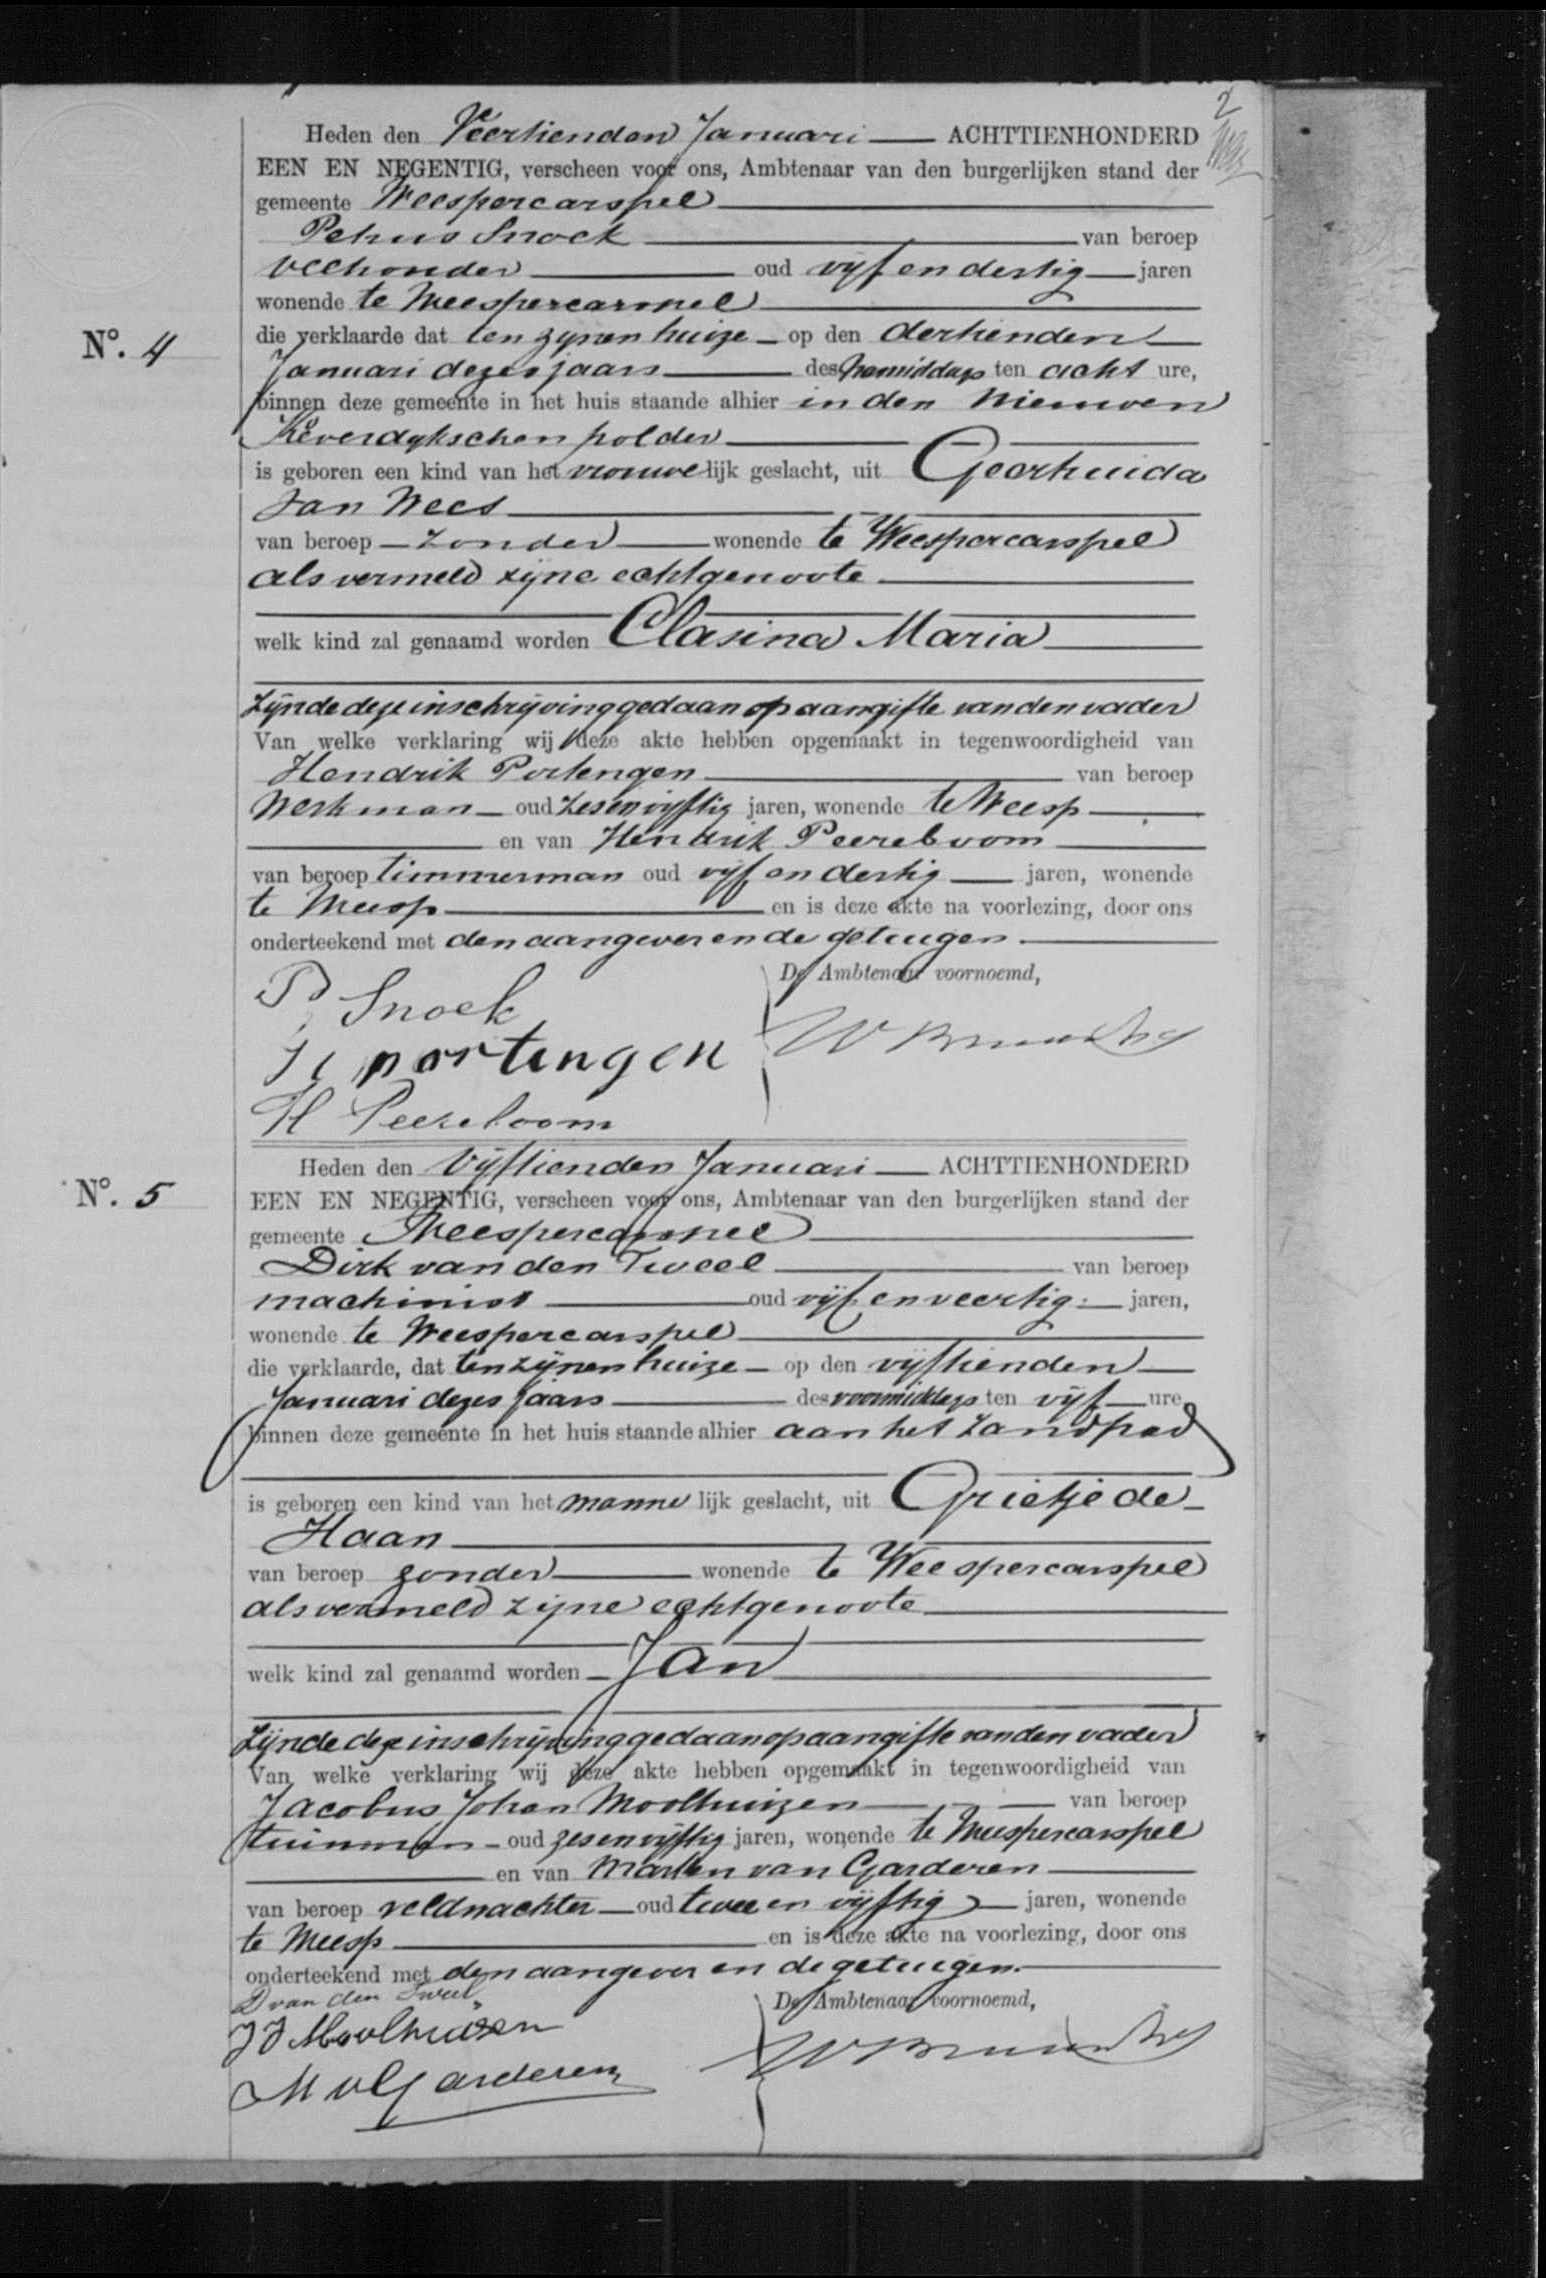 2
Heden den Veertienden Januari ACHTTIENHONDERD
EEN EN NEGENTIG, verscheen voor ons, Ambtenaar van den burgerlijken stand der
gemeente Weespercarspel
Petrus Snoek van beroep
veehouder oud vijf en dertig jaren
wonende te Weespercarspel
No. 4
die verklaarde dat ten zijnen huize op den dertienden
Januari dezes jaars des namiddags ten acht ure,
binnen deze gemeente in het huis staande alhier in den Nieuwen
Keverdijkschen polder
is geboren een kind van het vrouwelijk geslacht, uit Geertruida
van Wees
van beroep zonder wonende te Weespercarspel
als vermeld zijne echtgenoote
welk kind zal genaamd worden Clasina Maria
Zijnde deze inschrijving gedaan op aangifte van den vader
Van welke verklaring wij deze akte hebben opgemaakt in tegenwoordigheid van
Hendrik Portengen van beroep
Werkman oud zes en vijftig jaren, wonende te Weesp
en van Hendrik Peereboom
van beroep timmerman oud vijf en dertig jaren, wonende
te Weesp en is deze akte na voorlezing, door ons
onderteekend met den aangever en de getuigen.
De Ambtenaar voornoemd,
P Snoek
H portengen
H Peereboom
Heden den Vijftienden Januari ACHTTIENHONDERD
No. 5
EEN EN NEGENTIG, verscheen voor ons, Ambtenaar van den burgerlijken stand der
gemeente Weespercarspel
Dirk van den Tweel van beroep
machinist oud vijf en veertig jaren,
wonende te Weespercarspel
die verklaarde, dat ten zijnen huize op den vijftienden
Januari dezes jaars des voormiddags ten vijf ure
binnen deze gemeente in het huis staande alhier aan het Zandpad
is geboren een kind van het mannelijk geslacht, uit Grietje de
Haan
van beroep zonder wonende te Weespercarspel
als vermeld zijne echtgenoote
welk kind zal genaamd worden Jan
Zijnde deze inschrijving gedaan op aangifte van den vader
Van welke verklaring wij deze akte hebben opgemaakt in tegenwoordigheid van
Jacobus Johan Moolhuizen van beroep
tuinman oud zes en vijftig jaren, wonende te Weespercarspel
en van Marten van Garderen
van beroep veldwachter oud twee en vijftig jaren, wonende
te Weesp en is deze akte na voorlezing, door ons
onderteekend met den aangever en de getuigen.
De Ambtenaar voornoemd,
D van den Tweel
J J Moolhuizen
M v Garderen